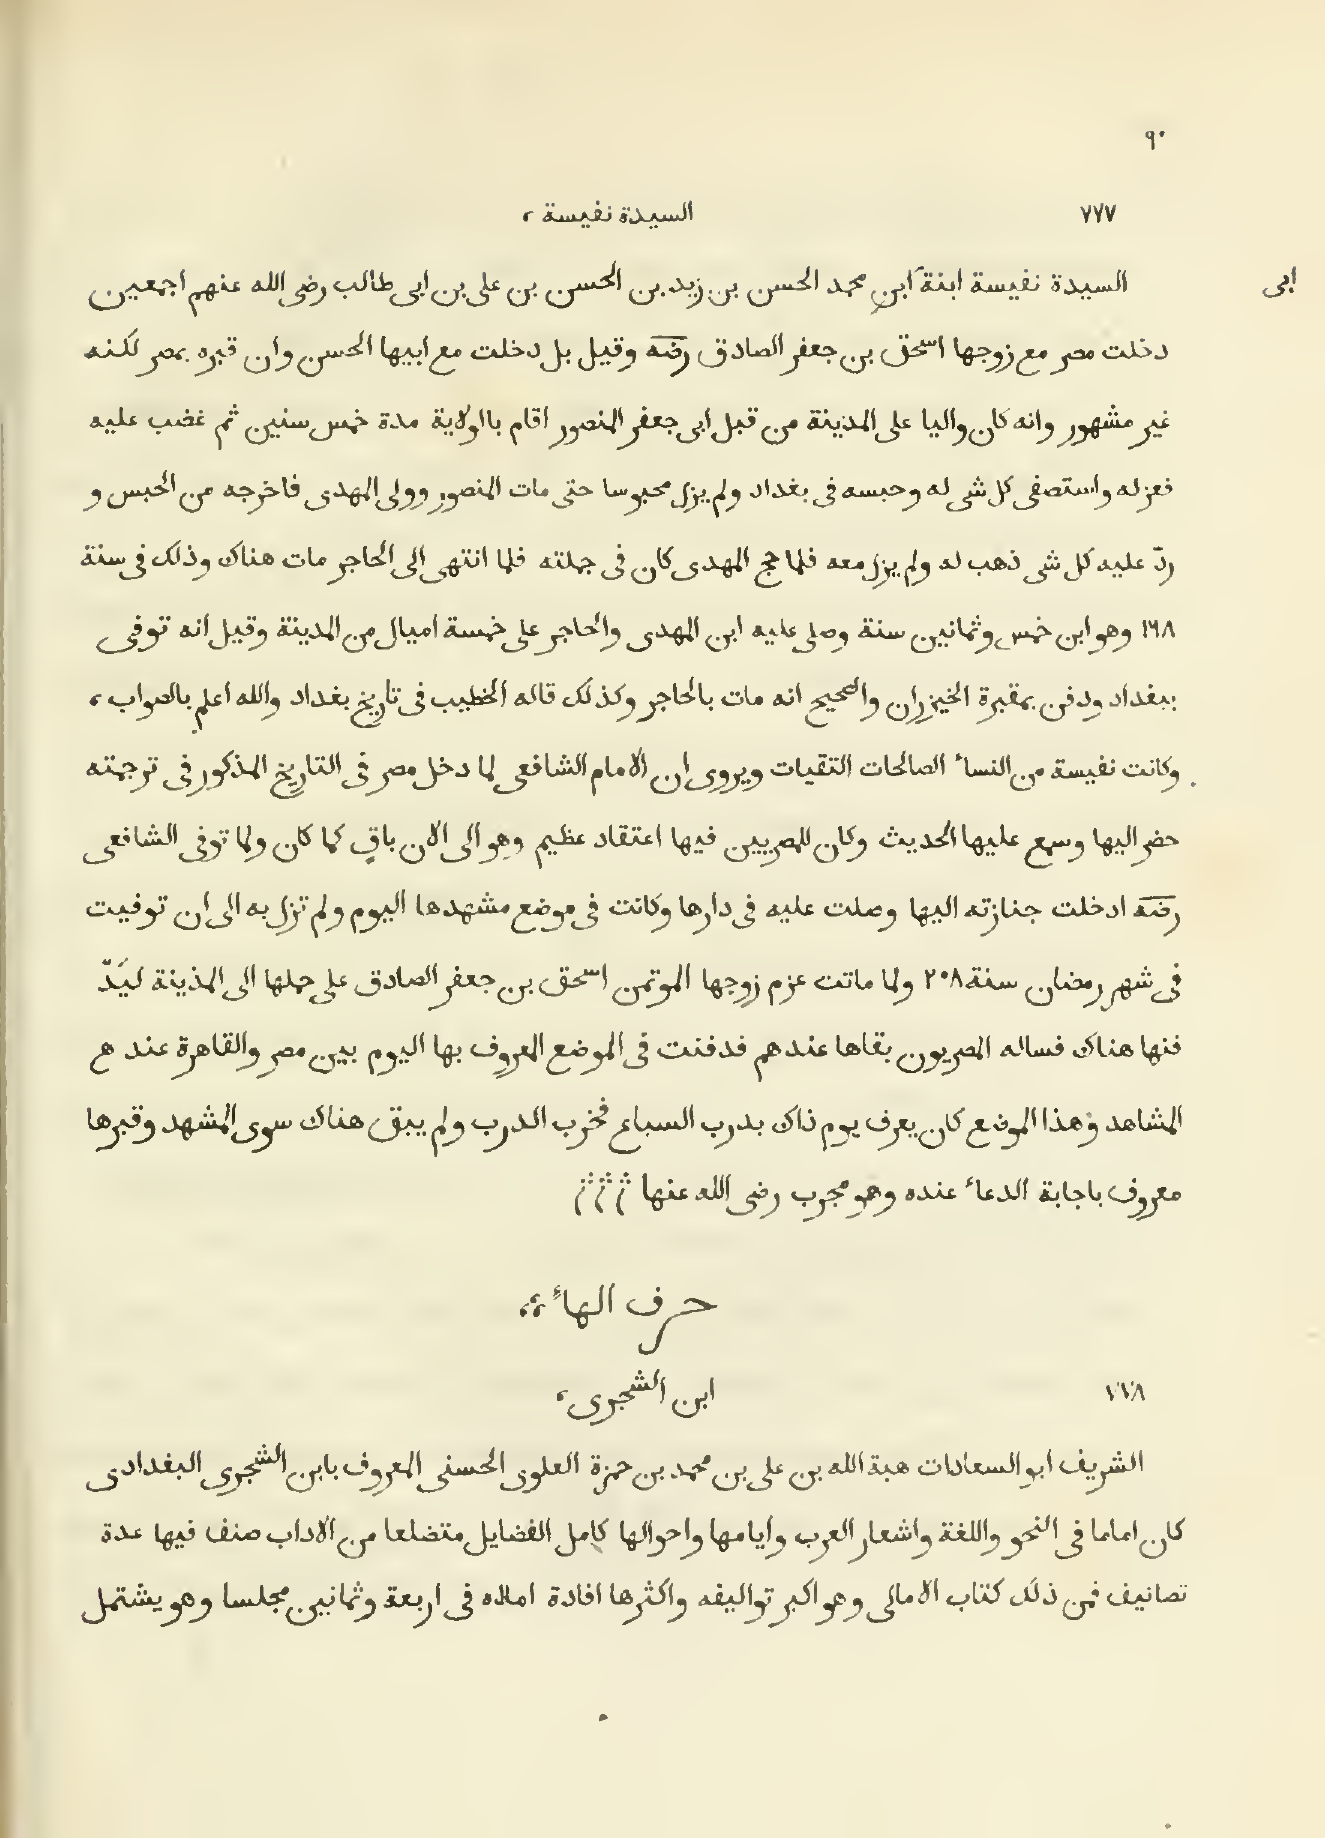 ٩٠
٧٧٧ السيدة نفيسة ،
السيدة نفيسة ابنة ابن محمد الحسن بن زيد بن الحسن بن على بن ابى طالب رضى الله عنهم اجمعين
ابى
دخلت مصر مع زوجها اسحق بن جعفر الصادق رضه وقيل بل دخلت مع ابيها الحسن وان قبره بمصر لكنه
غير مشهور وانه كان واليا على المدينة من قبل ابى جعفر المنصور اقام باالولاية مدة خمس سنين ثم غضب عليه
فعزله واستصفى كل شى له وحبسه فى بغداد ولم يزل محبوسا حتى مات المنصور وولى المهدى فاخرجه من الحبس و
ردّ عليه كل شى ذهب له ولم يزل معه فلما حج المهدى كان فى جملته فلما انتهى الى الحاجر مات هناك وذلك فى سنة
١٦٨ وهو ابن خمس وثمانين سنة وصلى عليه ابن المهدى والحاجر على خمسة اميال من المدينة وقيل انه توفى
ببغداد ودفن بمقبرة الخيزران والصحيح انه مات بالحاجر وكذلك قاله الخطيب فى تاريخ بغداد والله اعلم بالصواب ،
وكانت نفيسة من النساء الصالحات التقيات ويروى ان الامام الشافعى لما دخل مصر فى التاريخ المذكور فى ترجمته
حضر اليها وسمع عليها الحديث وكان للمصريين فيها اعتقاد عظيم وهو الى الان باقٍ كما كان ولما توفى الشافعى
رضه ادخلت جنازته اليها وصلت عليه فى دارها وكانت فى موضع مشهدها اليوم ولم تزل به الى ان توفيت
فى شهر رمضان سنة ٢٠٨ ولما ماتت عزم زوجها الموتمن اسحق بن جعفر الصادق على حملها الى المذينة ليَدّ
فنها هناك فساله المصريون بقاها عندهم فدفنت فى الموضع المعروف بها اليوم بين مصر والقاهرة عند هع
المشاهد وهذا الموضع كان يعرف يوم ذاك بدرب السباع فخرب الدرب ولم يبق هناك سوى المشهد وقبرها
معروف باجابة الدعاء عنده وهو مجرب رضى الله عنها
حرف الهاء ؞
٧٧٨ ابن الشجرى ،
الشريف ابو السعادات هبة الله بن على بن محمد بن حمزة العلوى الحسنى المعروف بابن الشجرى البغدادى
كان اماما فى النحو واللغة واشعار العرب وايامها واحوالها كامل الفضايل متضلعا من الاداب صنف فيها عدة
تصانيف فمن ذلك كتاب الامالى وهو اكبر تواليفه واكثرها افادة املاه فى اربعة وثمانين مجلسا وهو يشتمل